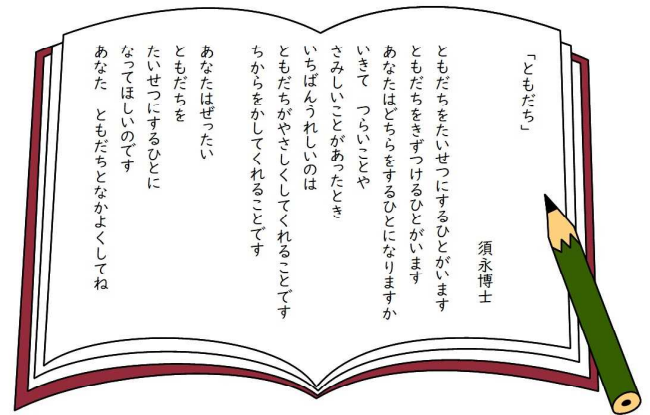 「ともだち」
須永博士
ともだちをたいせつにするひとがいます
ともだちをきずつけるひとがいます
あなたはどちらをするひとになりますか
いきて　つらいことや
さみしいことがあったとき
いちばんうれしいのは
ともだちがやさしくしてくれることです
ちからをかしてくれることです
あなたはぜったい
ともだちを
たいせつにするひとに
なってほしいのです
あなた　ともだちとなかよくしてね